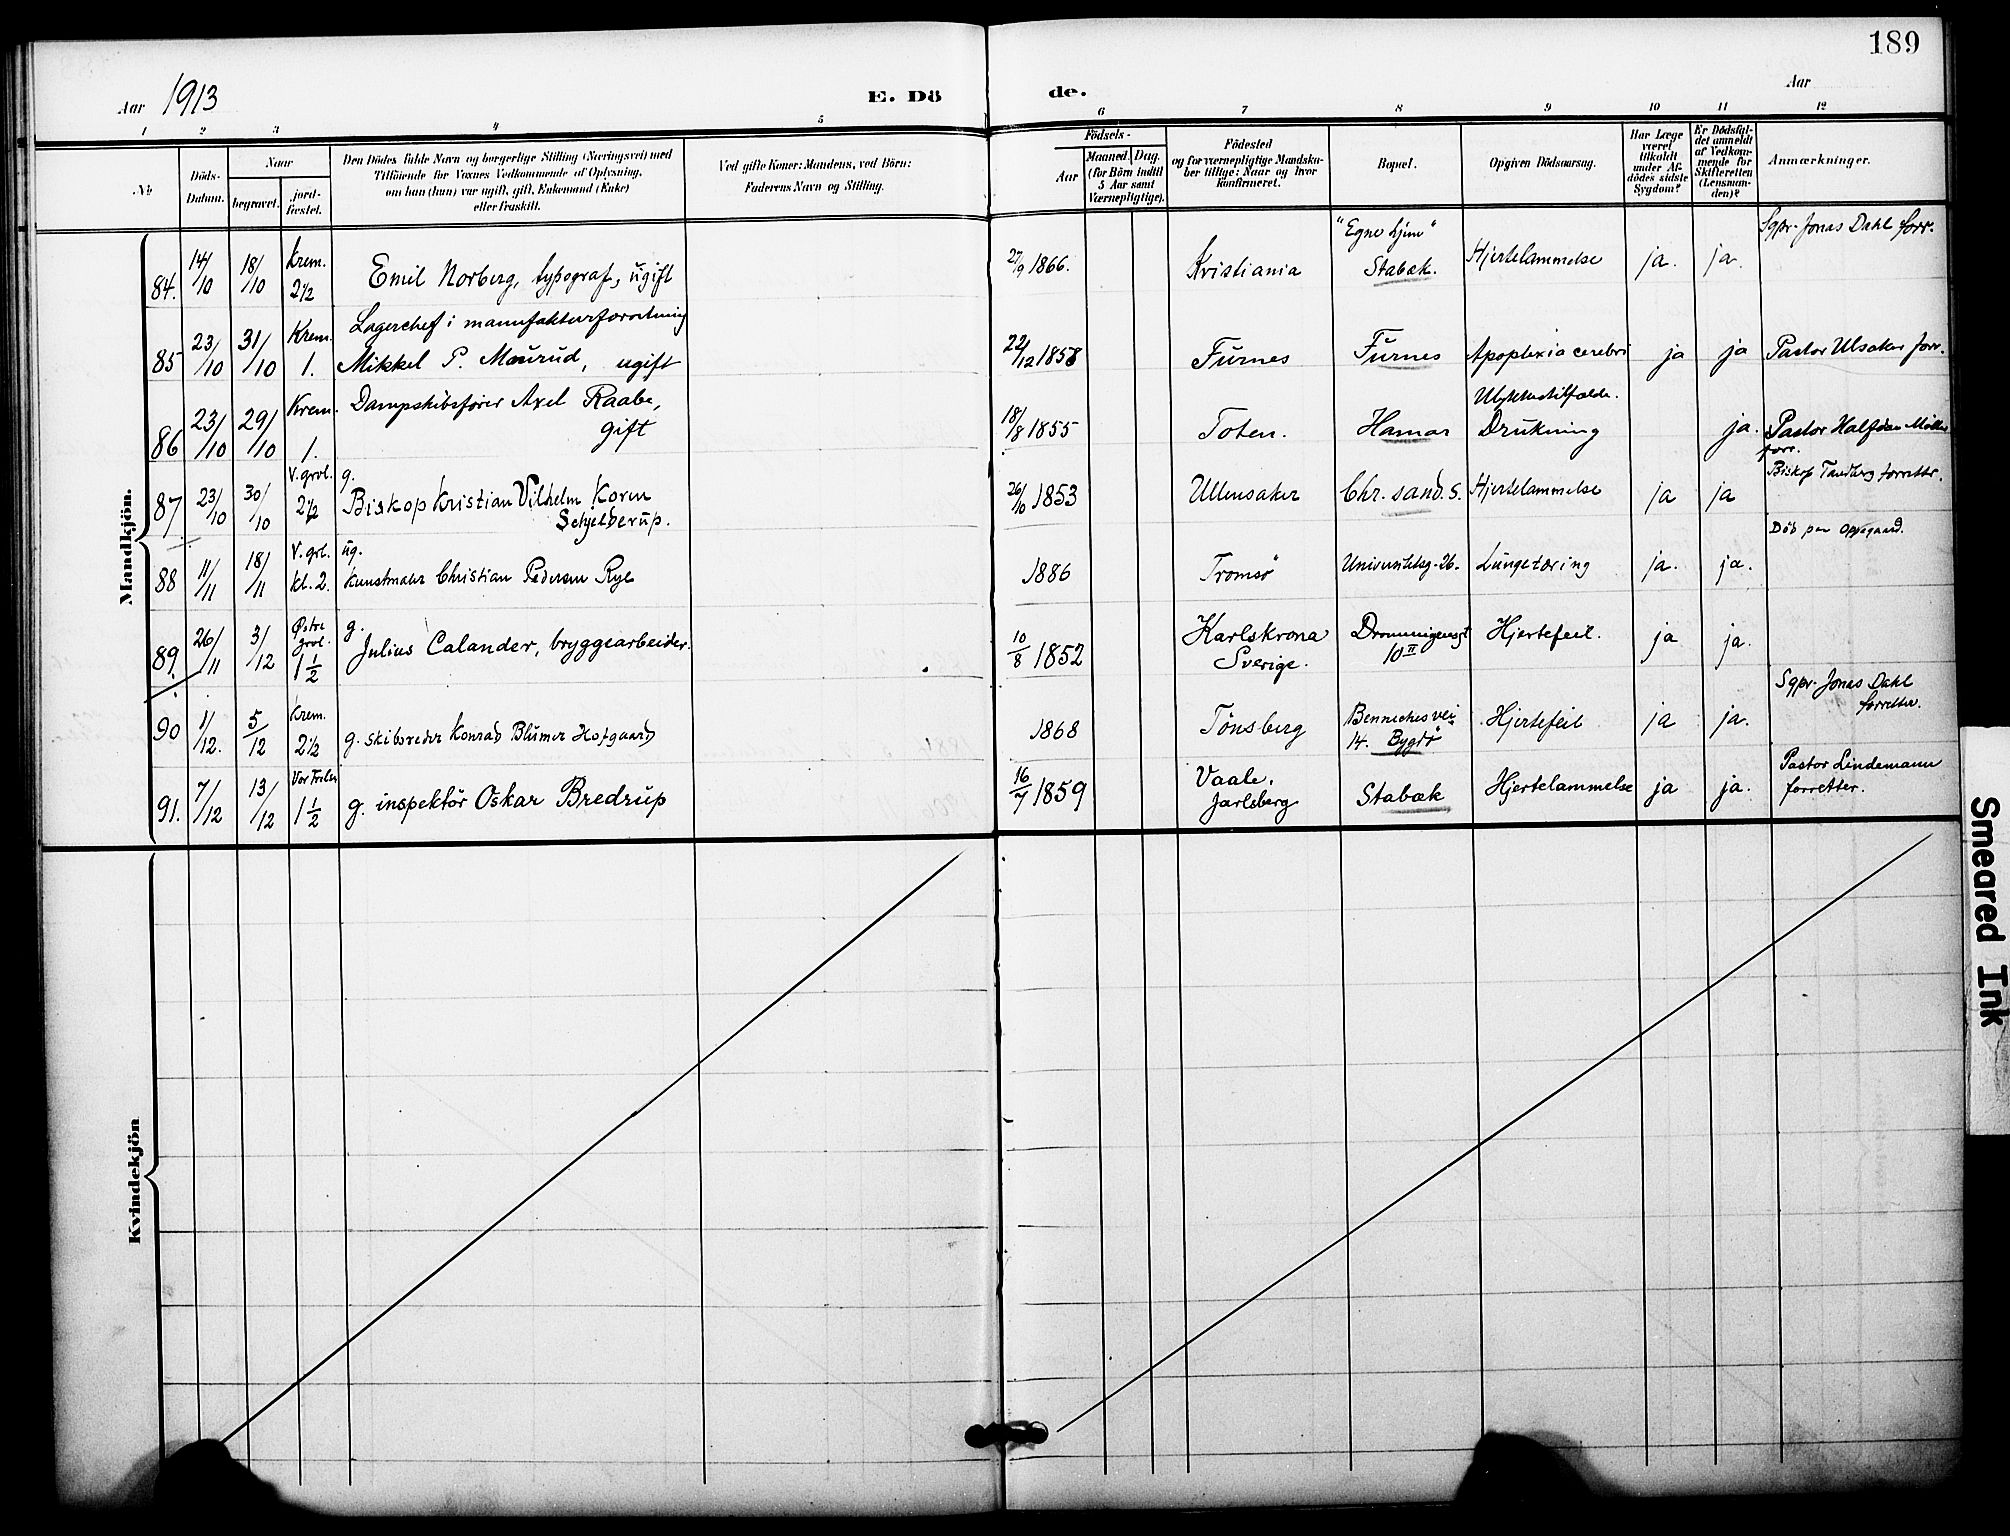 189
Aar 1913
E. Dö
de.
Aar
1 2 3 4 5 6 7 8 9 10 11 12
No
Döds-
Datum.
Naar
begravet.
jord-
fæstet.
Den Dödes fulde Navn og borgerlige Stilling (Næringsvei) med
Tilföiende för Voxnes Vedkommende af Oplysning,
om han (hun) var ugift, gift, Enkemand (Enke)
eller fraskilt.
Ved gifte Koner: Mandens, ved Börn:
Faderens Navn og Stilling.
Födsels-
Aar
Maaned. Dag.
(for Börn indtil
5 Aar samt
Værnepligtige).
Födested
og for værnepligtige Mandska-
ber tillige: Naar og hvor
konfirmeret.
Bopæl.
Opgiven Dödsaarsag.
Har Læge
været
tilkaldt
under Af-
dödes sidste
Sygdom?
Er Dödsfal-
det anmeldt
af Vedkom-
mende for
Skifteretten
(Lensman-
den)?
Anmærkninger.
Mandkjön.
84. 14/10 18/10 Krem. 2 1/2 Emil Norberg, typograf, ugift 27/9 1866. Kristiania "Egne hjem" Stabæk. Hjertelammelse ja. ja. Sgpr. Jonas Dahl forr.
85 23/10 31/10 Krem. 1. Lagerchef i manufakturforretning
Mikkel P. Maurud, ugift 22/12 1858 Furnes Furnes Apoplexia cerebri ja ja Pastor Ulsaker forr.
86 23/10 29/10 Krem. 1. Dampskibsfører Axel Raabe,
gift 18/8 1855 Toten. Hamar Ulykkestilfælde.
Drukning ja. Pastor Halfdan Møller
forr.
87. 23/10 30/10 V. grvl. 2 1/2 g.
Biskop Kristian Vilhelm Koren
Schjelderup. 26/10 1853 Ullensaker Chr. sand. S. Hjertelammelse ja ja Biskop Tandberg forretter.
88 11/11 18/11 V. grl. kl. 2. ug.
kunstmaler Christian Pedersen Rye 1886 Tromsø Universitetsg. 26. Lungetæring ja. ja. Död paa Oppegaard.
89. 26/11 3/12 Østre grvl. 1 1/2 g.
Julius Calander, bryggearbeider. 10/8 1852 Karlskrona
Sverige. Dronningensgt
10 II Hjertefeil. ja ja.
90 1/12. 5/12 Krem. 2 1/2 g. skibsreder Konrad Blumer Hofgaard 1868 Tönsberg Bennechesvei
14. Bygdö Hjertefeil ja ja. Sgpr. Jonas Dahl
forretter.
91. 7/12 13/12 Vor Frelser 1 1/2 g. inspektör Oskar Bredrup 16/7 1859 Vaale.
Jarlsberg Stabæk Hjertelammelse ja ja. Pastor Lindemann
forretter.
Kvindekjön
Smeared Ink